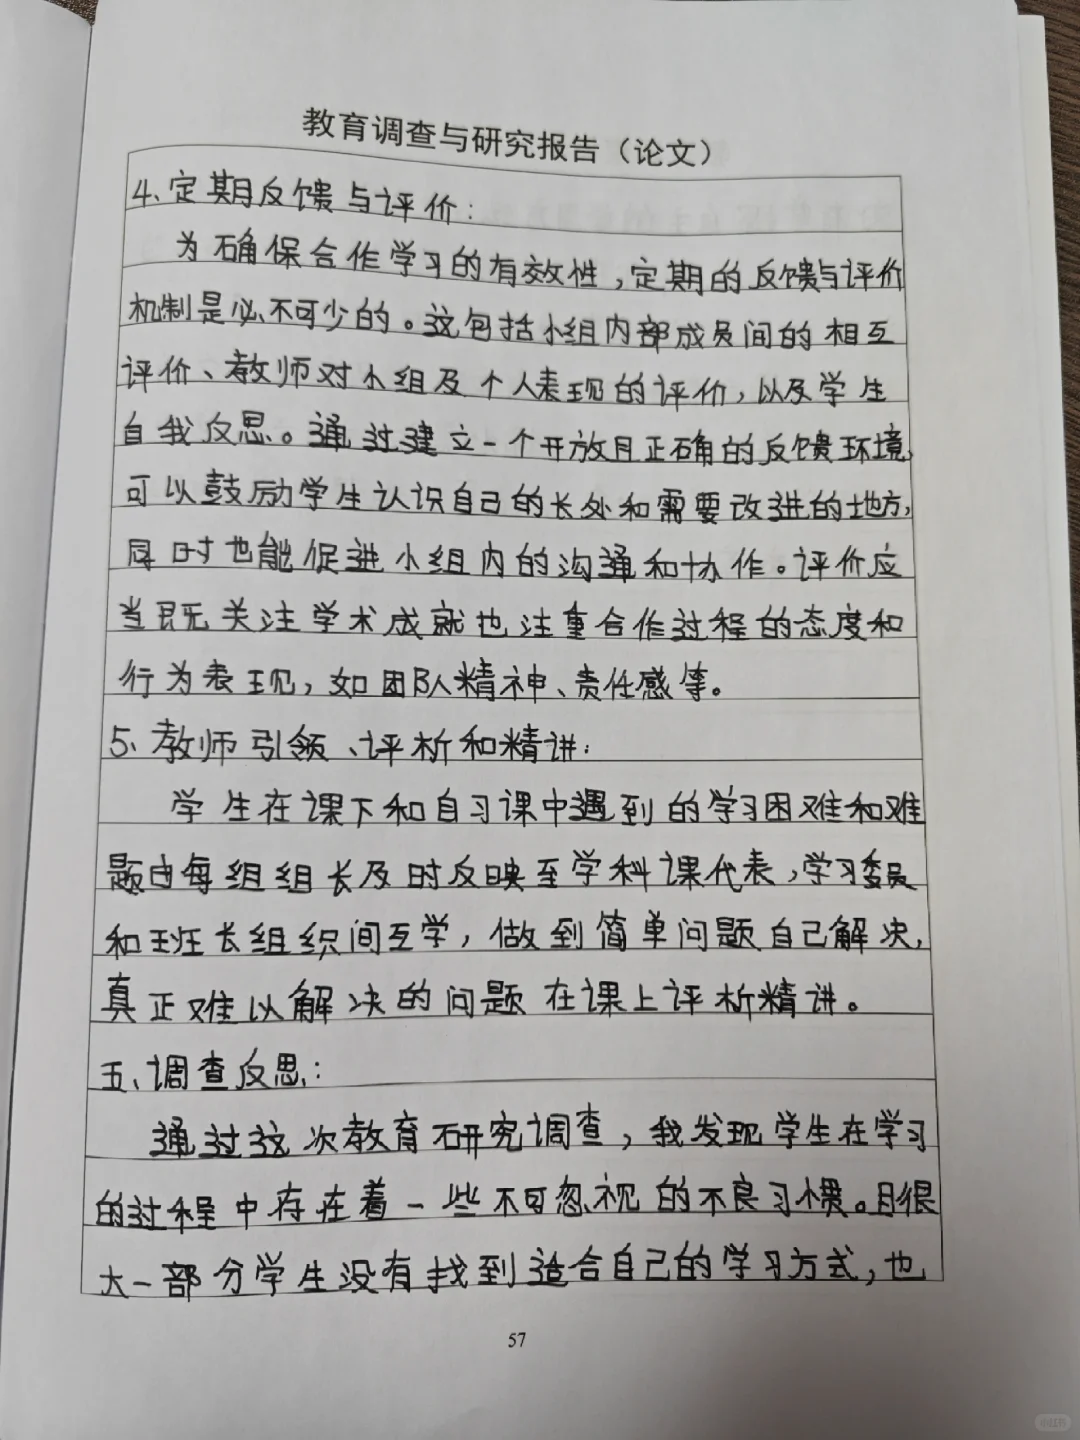 教育调查与研究报告（论文）
4、定期反馈与评价：
为确保合作学习的有效性，定期的反馈与评价
机制是必不可少的。这包括小组内部成员间的相互
评价、教师对小组及个人表现的评价，以及学生
自我反思。通过建立一个开放且正确的反馈环境，
可以鼓励学生认识自己的长处和需要改进的地方，
同时也能促进小组内的沟通和协作。评价应
当既关注学术成就也注重合作过程的态度和
行为表现，如团队精神、责任感等。
5、教师引领、评析和精讲：
学生在课下和自习课中遇到的学习困难和难
题由每组组长及时反映至学科课代表，学习委员
和班长组织间互学，做到简单问题自己解决，
真正难以解决的问题在课上评析精讲。
五、调查反思：
通过这次教育研究调查，我发现学生在学习
的过程中存在着一些不可忽视的不良习惯。且很
大一部分学生没有找到适合自己的学习方式，也
57
小红书